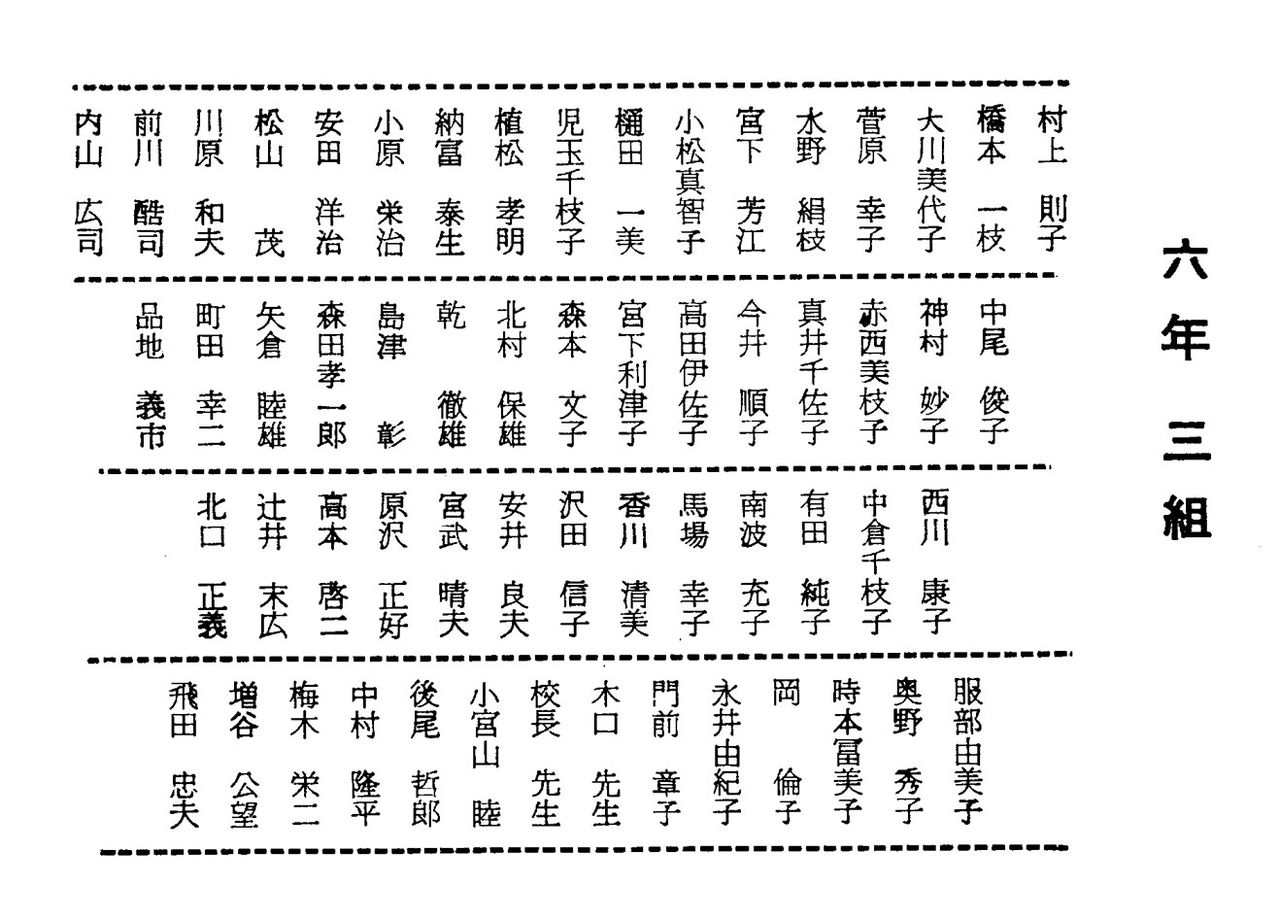 六年 三組
村上 則子
橋本 一枝
大川美代子
菅原 幸子
水野 絹枝
宮下 芳江
小松真智子
樋田 一美
児玉千枝子
植松 孝明
納富 泰生
小原 栄治
安田 洋治
松山 茂
川原 和夫
前川 酷司
内山 広司
中尾 俊子
神村 妙子
赤西美枝子
真井千佐子
今井 順子
高田伊佐子
宮下利津子
森本 文子
北村 保雄
乾 徹雄
島津 彰
森田孝一郎
矢倉 睦雄
町田 幸二
品地 義市
西川 康子
中倉千枝子
有田 純子
南波 充子
馬場 幸子
香川 清美
沢田 信子
安井 良夫
宮武 晴夫
原沢 正好
高本 啓二
辻井 末広
北口 正義
服部由美子
奥野 秀子
時本冨美子
岡 倫子
永井由紀子
門前 章子
木口 先生
校長 先生
小宮山 睦
後尾 哲郎
中村 隆平
梅木 栄二
増谷 公望
飛田 忠夫